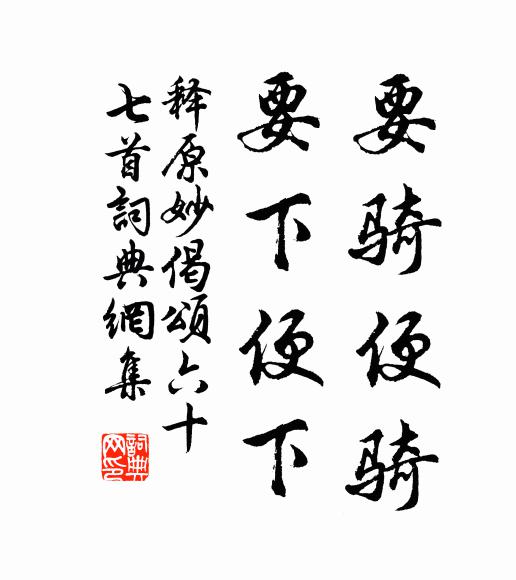 要骑便骑
要下便下
释原妙偈頌六十
七首詞典網集
詞典
网印